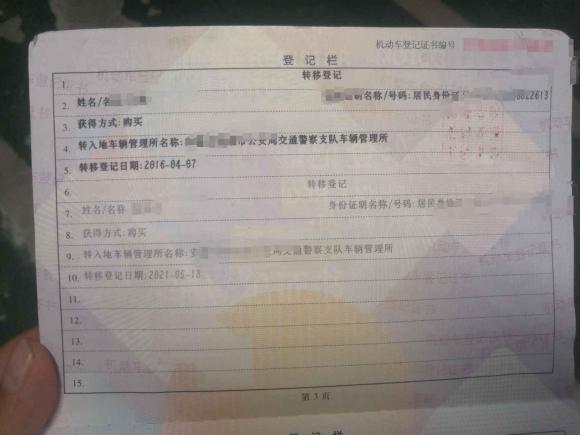 机动车登记证书编号
登记栏
1. 转移登记
2. 姓名/名 明名称/号码:居民身份证 022613
3. 获得方式:购买
4. 转入地车辆管理所名称: 市公安局交通警察支队车辆管理所
5. 转移登记日期:2016-04-07
6. 转移登记
7. 姓名/名称 身份证明名称/号码:居民身份
8. 获得方式:购买
9. 转入地车辆管理所名称: 局交通警察支队车辆管理所
10. 转移登记日期:2021-05-18
11.
12.
13.
14.
15.
第3页
登记栏